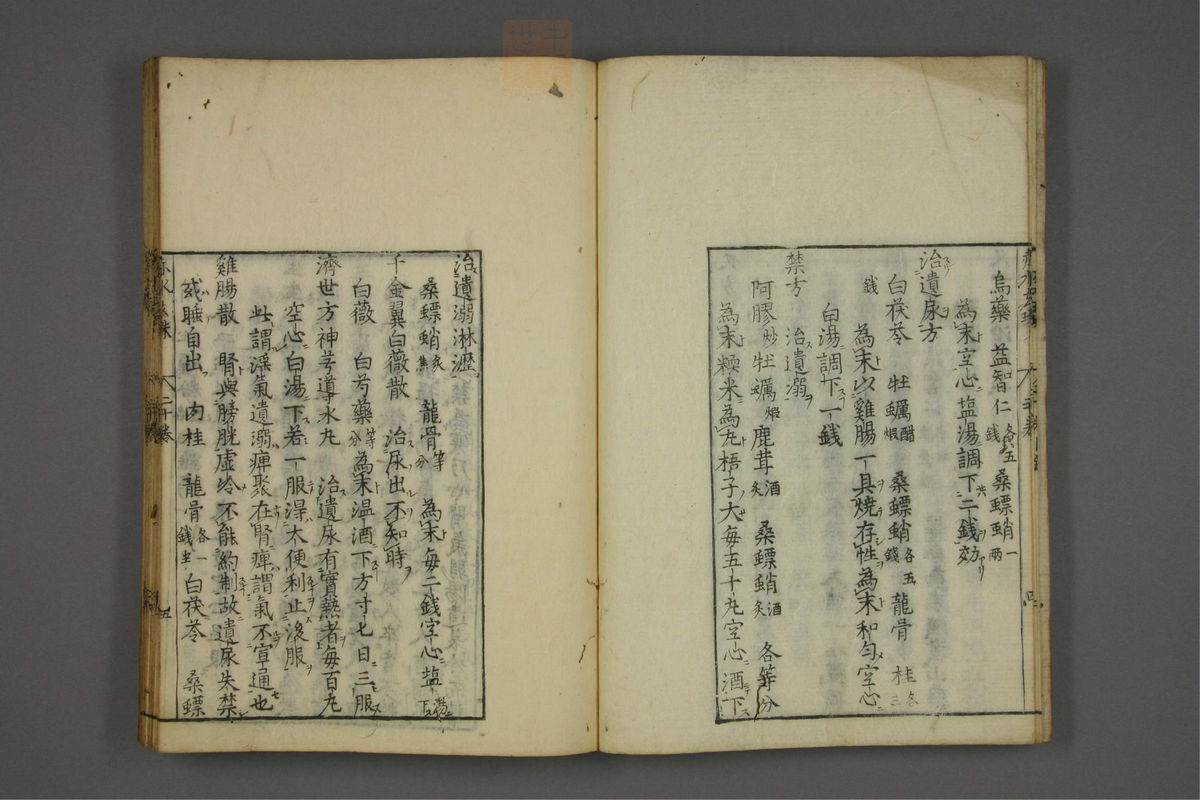 烏藥 益智仁各五錢 桑螵蛸一兩
為末空心塩湯調下二錢効
治遺尿方
白茯苓 牡蠣醋煆 桑螵蛸各五錢 龍骨 桂各三
錢 為末以雞腸一具燒存性為末和勻空心
白湯調下一錢
禁方 治遺溺
阿膠炒 牡蠣煆 鹿茸酒炙 桑螵蛸酒炙 各等分
為末糯米為丸梧子大每五十丸空心酒下
治遺溺淋瀝
桑螵蛸炙焦 龍骨等分 為末每二錢空心塩湯下
千金翼白薇散 治尿出不知時
白薇 白芍藥等分 為末温酒下方寸七日三服
濟世方神芎導水丸 治遺尿有實熱者每百丸
空心白湯下若一服淂大便利止後服
此謂滛氣遺溺痺聚在腎痺謂氣不宣通也
雞腸散 腎與膀胱虛冷不能約制故遺尿失禁
或睡自出 肉桂 龍骨各一錢半 白茯苓 桑螵